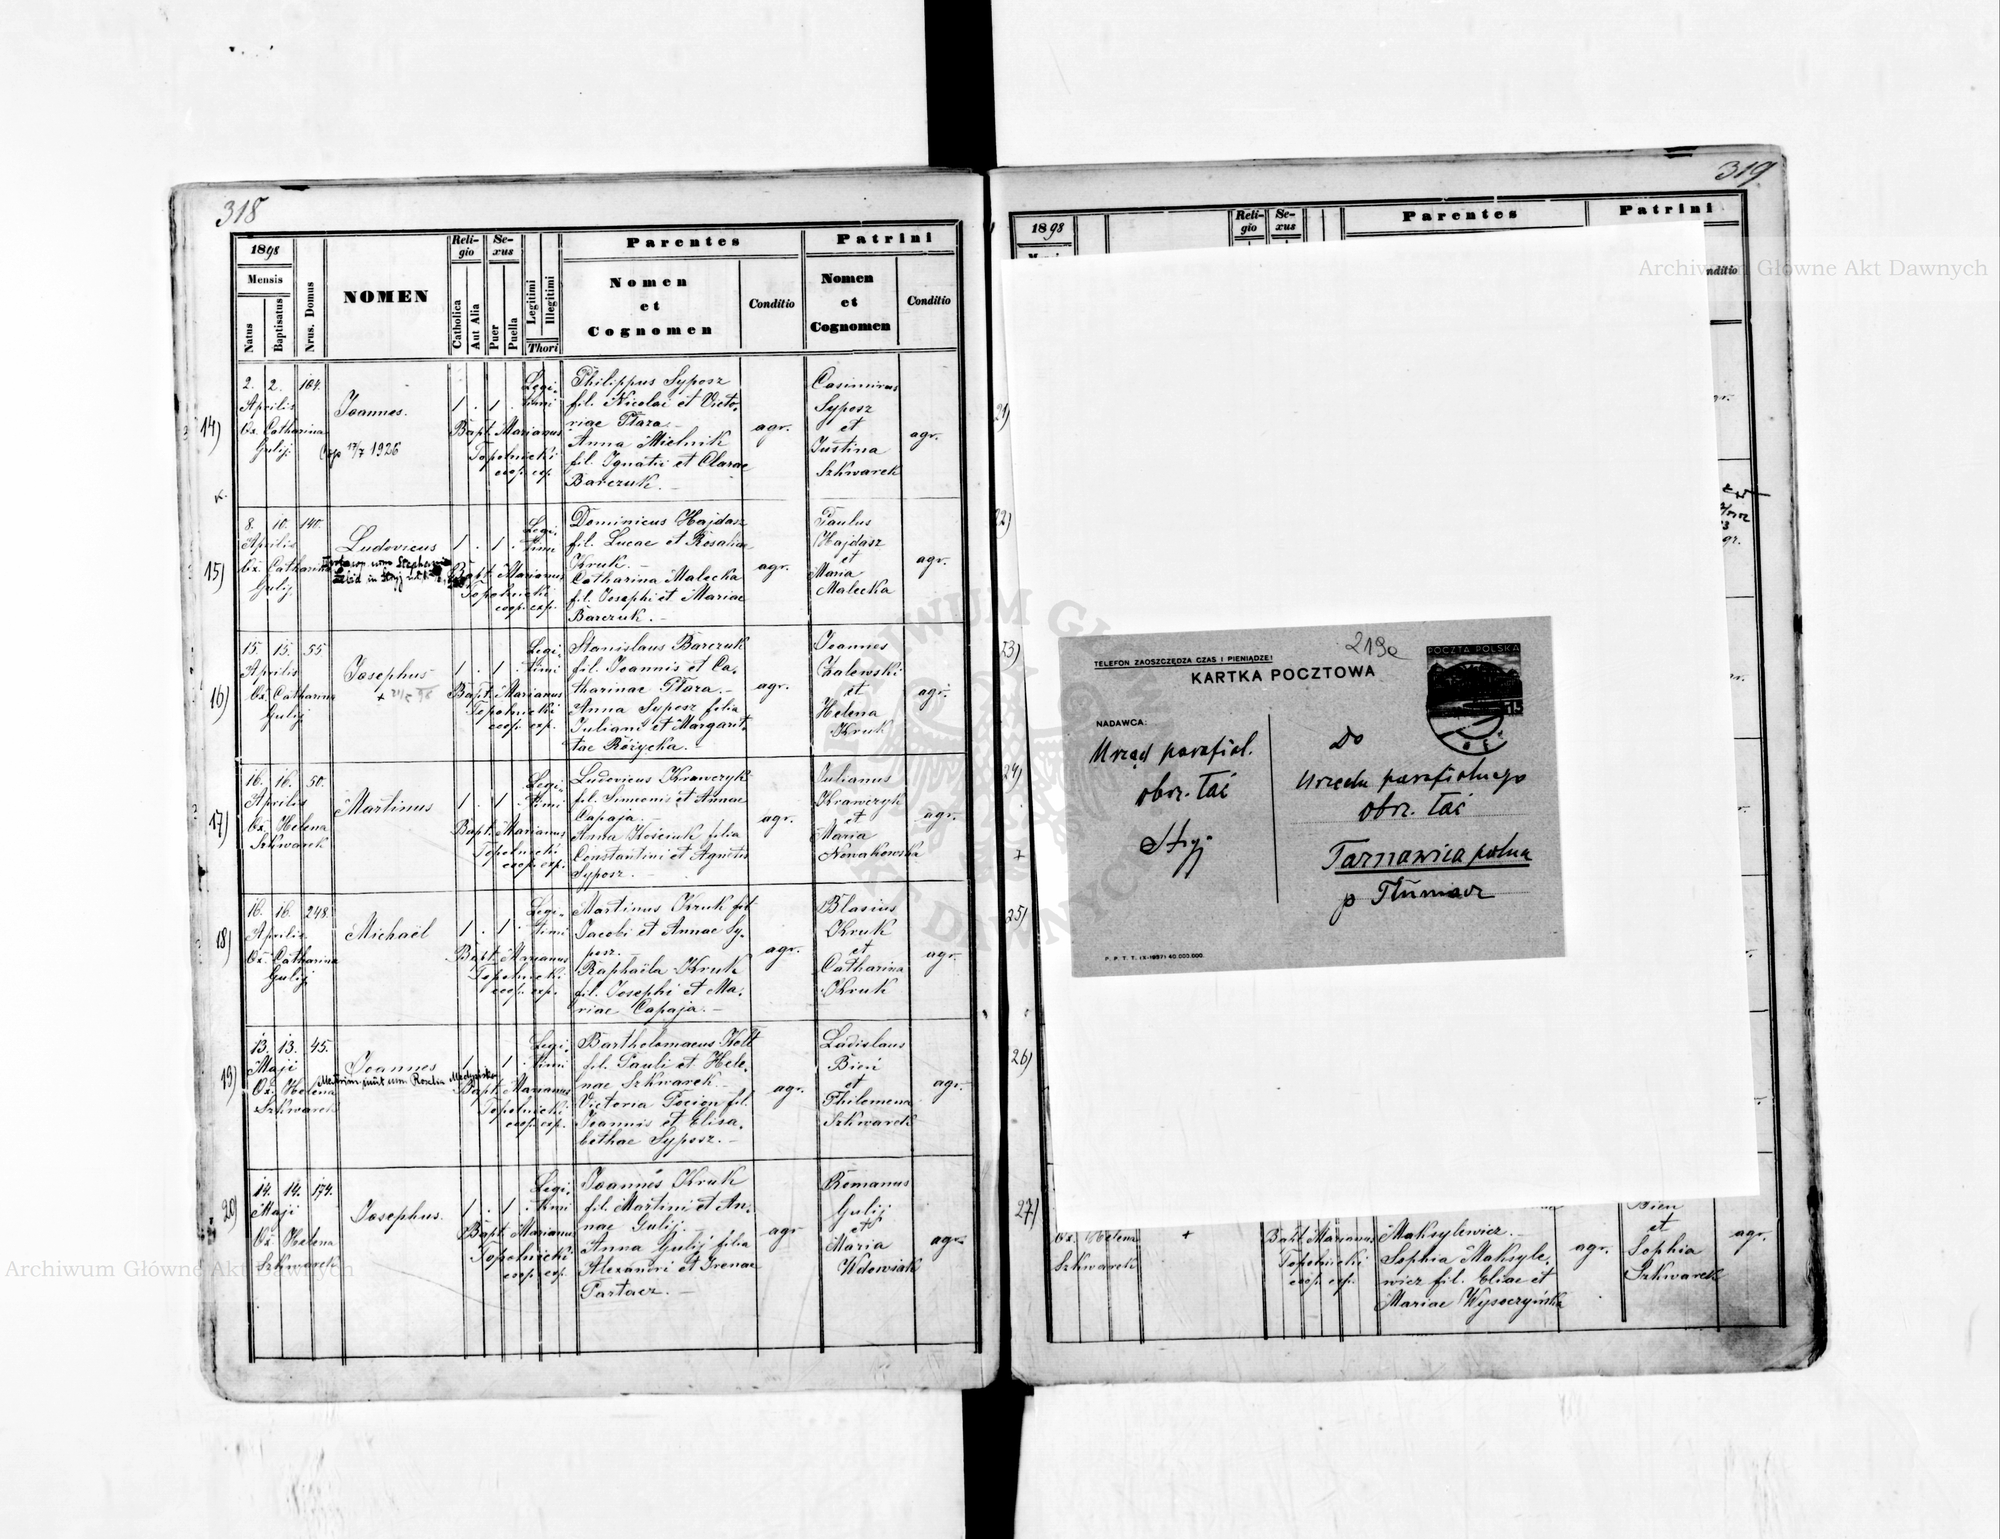 318
1898
Mensis
Natus
Baptisatus
Nrus. Domus
NOMEN
Reli-
gio
Catholica
Aut Alia
Se-
xus
Puer
Puella
Legitimi
Illegitimi
Thori
Parentes
Nomen
et
Cognomen
Conditio
Patrini
Nomen
et
Cognomen
Conditio
14)
2. 2. 104.
Aprilis
Ox. Catharina
Gulij
Joannes.
17/7 1926
1 . 1 .
Legi-
timi
Bapt. Marianus
Topolnicki
coop. exp.
Philippus Syposz
fil. Nicolai et Victo-
riae Ptaza.
Anna Mielnik
fil. Ignatii et Clarae
Barczuk.
agr.
Casimirus
Syposz
et
Justina
Szkwarek
agr.
15)
8. 10. 140.
Aprilis
Ox. Catharina
Gulij
Ludovicus
1 . 1 .
Legi-
timi
Bapt. Marianus
Topolnicki
coop. exp.
Dominicus Hajdasz
fil. Lucae et Rosaliae
Kruk.
Catharina Malecka
fil. Josephi et Mariae
Barczuk.
agr.
Paulus
Hajdasz
et
Maria
Malecka
agr.
16)
15. 15. 55
Aprilis
Ox. Catharina
Gulij
Josephus
1 . 1 .
Legi-
timi
Bapt. Marianus
Topolnicki
coop. exp.
Stanislaus Barczuk
fil. Joannis et Ca-
tharinae Ptaza.
Anna Syposz filia
Juliani et Margari-
tae Różycka.
agr.
Joannes
Zalewski
et
Helena
Kruk
agr.
17)
16. 16. 50.
Aprilis
Ox. Helena
Szkwarek
Martinus
1 . 1 .
Legi-
timi
Bapt. Marianus
Topolnicki
coop. exp.
Ludovicus Krawczyk
fil. Simeonis et Annae
Capaja.
Anna Kościuk filia
Constantini et Agnetis
Syposz.
agr.
Julianus
Krawczyk
et
Maria
Nowakowska
agr.
18)
16. 16. 248.
Aprilis
Ox. Catharina
Gulij
Michaël
1 . 1 .
Legi-
timi
Bapt. Marianus
Topolnicki
coop. exp.
Martinus Kruk fil.
Jacobi et Annae Sy-
posz.
Raphaëla Kruk
fil. Josephi et Ma-
riae Capaja.
agr.
Blasius
Kruk
et
Catharina
Kruk
agr.
19)
13. 13. 45.
Maji
Ox. Helena
Szkwarek
Joannes
1 . 1 .
Legi-
timi
Bapt. Marianus
Topolnicki
coop. exp.
Bartholomaeus Kott
fil. Pauli et Hele-
nae Szkwarek.
Victoria Pocion fil.
Joannis et Elisa-
bethae Syposz.
agr.
Ladislaus
Bień
et
Philomena
Szkwarek
agr.
20)
14. 14. 174.
Maji
Ox. Helena
Szkwarek
Josephus.
1 . 1 .
Legi-
timi
Bapt. Marianus
Topolnicki
coop. exp.
Joannes Kruk
fil. Martini et An-
nae Gulij.
Anna Gulij filia
Alexandri et Irenae
Partacz.
agr
Romanus
Gulij
et
Maria
Wdowiak
agr.
319
1898
Reli-
gio
Se-
xus
Parentes
Patrini
nditio
21)
22)
23)
24)
25)
26)
27)
219a
TELEFON ZAOSZCZĘDZA CZAS I PIENIĄDZE!
KARTKA POCZTOWA
POCZTA POLSKA
15
NADAWCA:
Urząd parafial.
obrz. łać
Stryj
Do
Urzędu parafialnego
obrz. łać
Tarnawica polna
p Tłumacz
P. P. T. T. (X-1937) 40.000.000.
Ox. Helena
Szkwarek
+
Bapt. Marianus
Topolnicki
coop. exp.
Maksylewicz.
Sophia Maksyle-
wicz fil. Eliae et
Mariae Wysoczyńska
agr.
Bień
et
Sophia
Szkwarek
agr.
Archiwum Główne Akt Dawnych
Archiwum Główne Akt Dawnych
ARCHIWUM GŁÓWNE AKT DAWNYCH